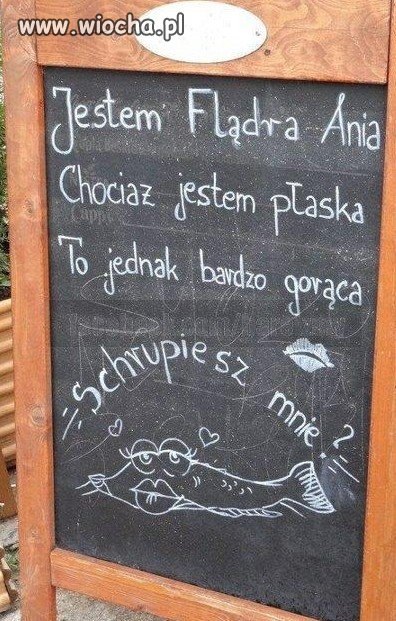 www.wiocha.pl
Jestem Flądra Ania
Chociaż jestem płaska
To jednak bardzo gorąca
Schrupiesz mnie?